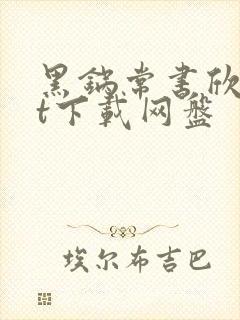 黑锅常书欣
t下载网盘
埃尔布吉巴